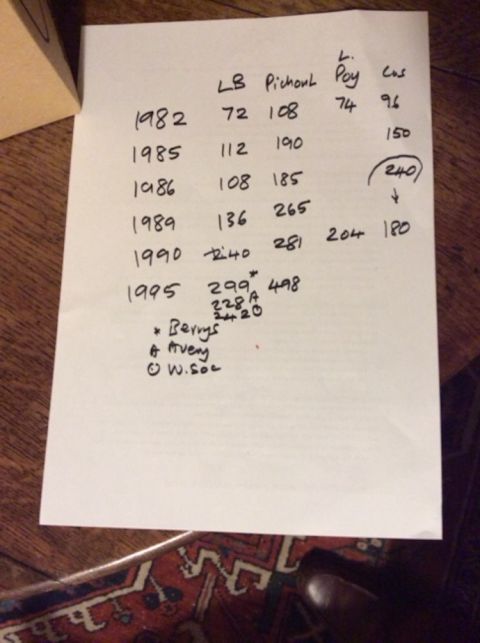 LB Pichonl L. Poy Cos
1982 72 108 74 96
1985 112 190 150
1986 108 185 240
1989 136 265
1990 240 281 204 180
1995 299* 498
228 A
242 O
* Berrys
A Avery
O W.Soc